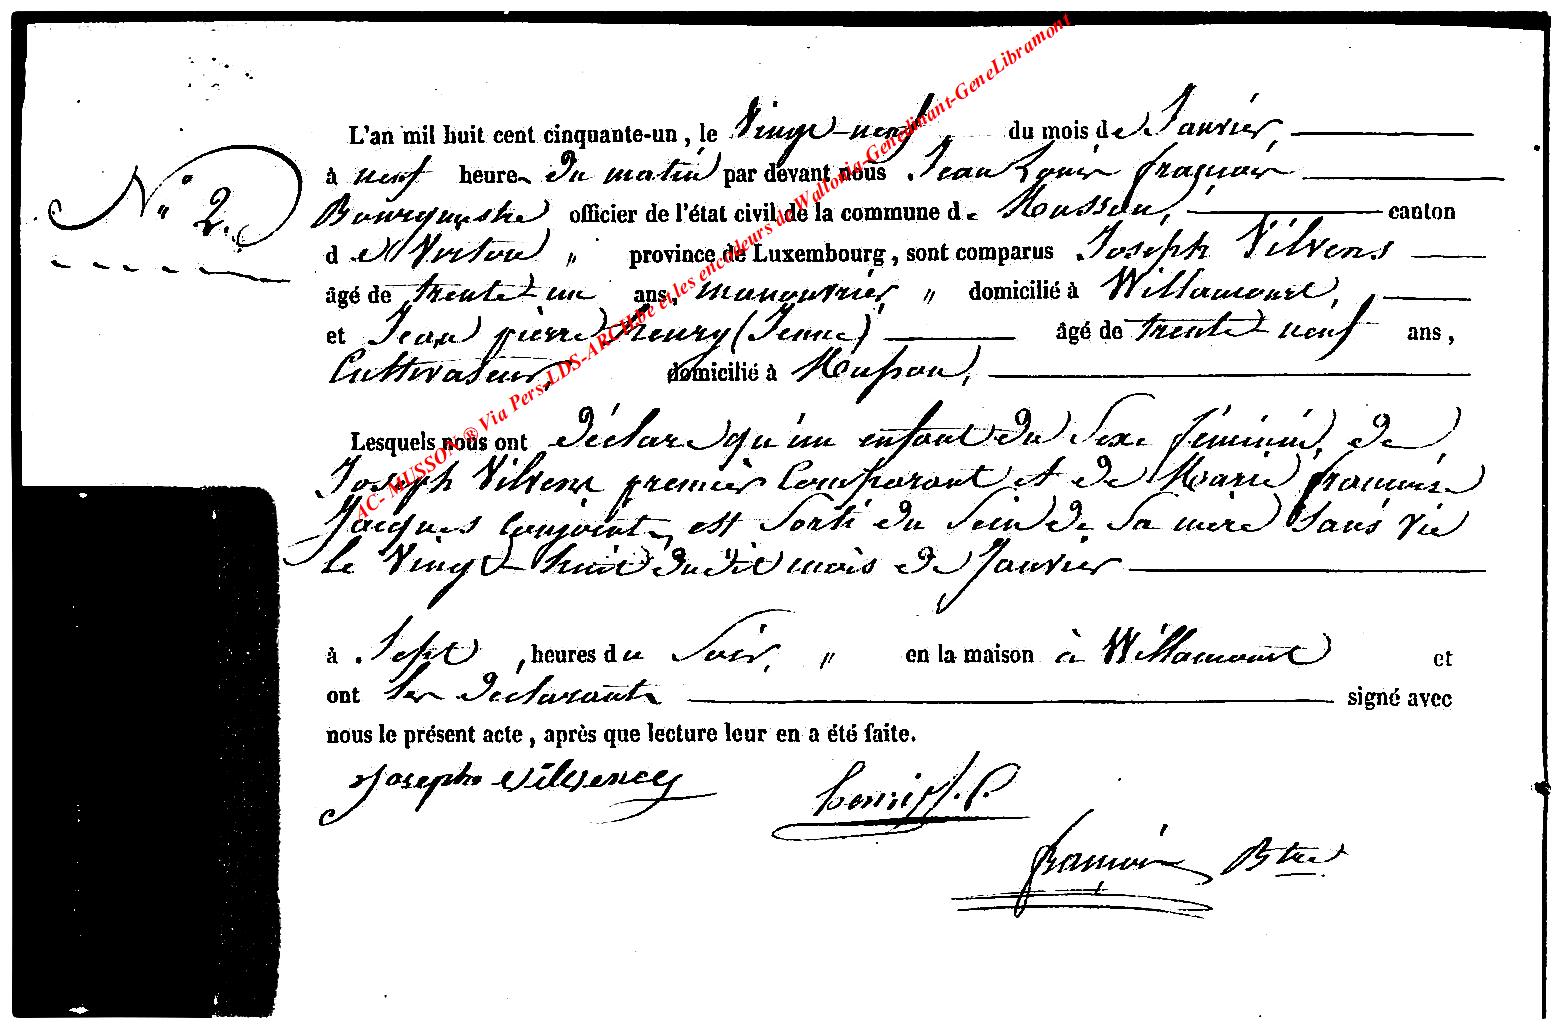 L'an mil huit cent cinquante-un, le Vingt-neuf du mois de Janvier,
N° 2.
à neuf heures du matin par devant nous Jean Louis françois
Bourgmestre officier de l'état civil de la commune de Musson, canton
de Virton " province de Luxembourg, sont comparus Joseph Vilvens
âgé de trente-un ans, manouvrier, " domicilié à Willamont,
et Jean pierre henry (Jenne) âgé de trente-neuf ans,
Cultivateur, domicilié à Musson,
Lesquels nous ont déclaré qu'un enfant du Sexe féminin, de
Joseph Vilvens premier Comparant et de Marie françoise
Jacques conjoints, est Sorti du Sein de Sa mère Sans vie
le Vingt-huit dudit mois de Janvier
à Sept, heures du Soir, " en la maison à Willamont et
ont les déclarants signé avec
nous le présent acte, après que lecture leur en a été faite.
Joseph
françois Btre
AC- MUSSON ® Via Pers-LDS-ARCH.be et les encodeurs de Wallonia-Genedinant-GeneLibramont